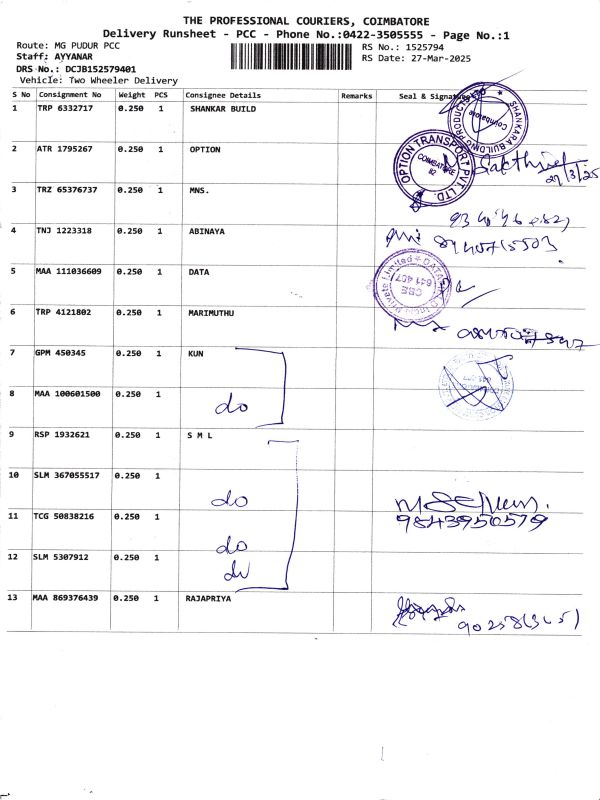 THE PROFESSIONAL COURIERS, COIMBATORE
Delivery Runsheet - PCC - Phone No.:0422-3505555 - Page No.:1
Route: MG PUDUR PCC
RS No.: 1525794
Staff: AYYANAR
RS Date: 27-Mar-2025
DRS No.: DCJB152579401
Vehicle: Two Wheeler Delivery
S No Consignment No Weight PCS Consignee Details Remarks Seal & Signature
1 TRP 6332717 0.250 1 SHANKAR BUILD
SHANKARA BUILDING PRODUCTS LTD
Coimbatore
2 ATR 1795267 0.250 1 OPTION
OPTION TRANSPORT PVT. LTD.
COIMBATORE
27/3/25
3 TRZ 65376737 0.250 1 MNS.
4 TNJ 1223318 0.250 1 ABINAYA
5 MAA 111036609 0.250 1 DATA
CBE
641 407
Private Limited
6 TRP 4121802 0.250 1 MARIMUTHU
7 GPM 450345 0.250 1 KUN
8 MAA 100601500 0.250 1 do
9 RSP 1932621 0.250 1 S M L
10 SLM 367055517 0.250 1 do
11 TCG 50838216 0.250 1 do
9843950579
12 SLM 5307912 0.250 1 do
13 MAA 869376439 0.250 1 RAJAPRIYA